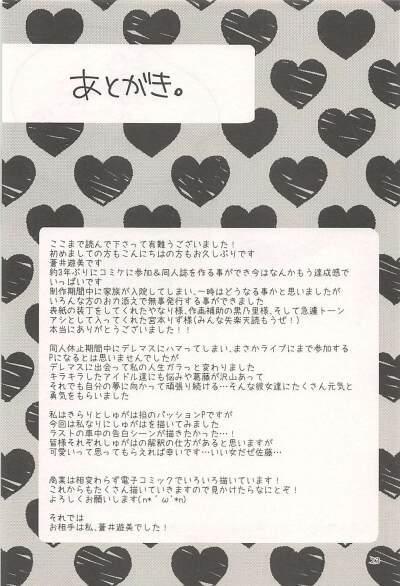 あとがき。
ここまで読んで下さって有難うございました！
初めましての方もこんにちはの方もお久しぶりです
蒼井遊美です
約3年ぶりにコミケに参加＆同人誌を作る事ができ今はなんかもう達成感で
いっぱいです
制作期間中に家族が入院してしまい、一時はどうなる事かと思いましたが
いろんな方のお力添えで無事発行する事ができました
表紙の装丁をしてくれたやなり様、作画補助の黒乃里様、そして急遽トーン
アシとして入ってくれた宮本りず様(みんな矢楽天読もうぜ！)
本当にありがとうございました！！
同人休止期間中にデレマスにハマってしまい、まさかライブにまで参加する
Pになるとは思いませんでしたが
デレマスに出会って私の人生ガラっと変わりました
キラキラしたアイドル達にも悩みや葛藤が沢山あって
それでも自分の夢に向かって頑張り続ける…そんな彼女達にたくさん元気と
勇気をもらいました
私はきらりとしゅがは担のパッションPですが
今回は私なりにしゅがはを描いてみました
ラストの車中の告白シーンが描きたかった…！
皆様それぞれしゅがはの解釈の仕方があると思いますが
可愛いって思ってもらえれば幸いです…いい女だぜ佐藤…
商業は相変わらず電子コミックでいろいろ描いています！
これからもたくさん描いていきますので見かけたらなにとぞ！
よろしくお願いします(n*´ω`*n)
それでは
お相手は私、蒼井遊美でした！
23